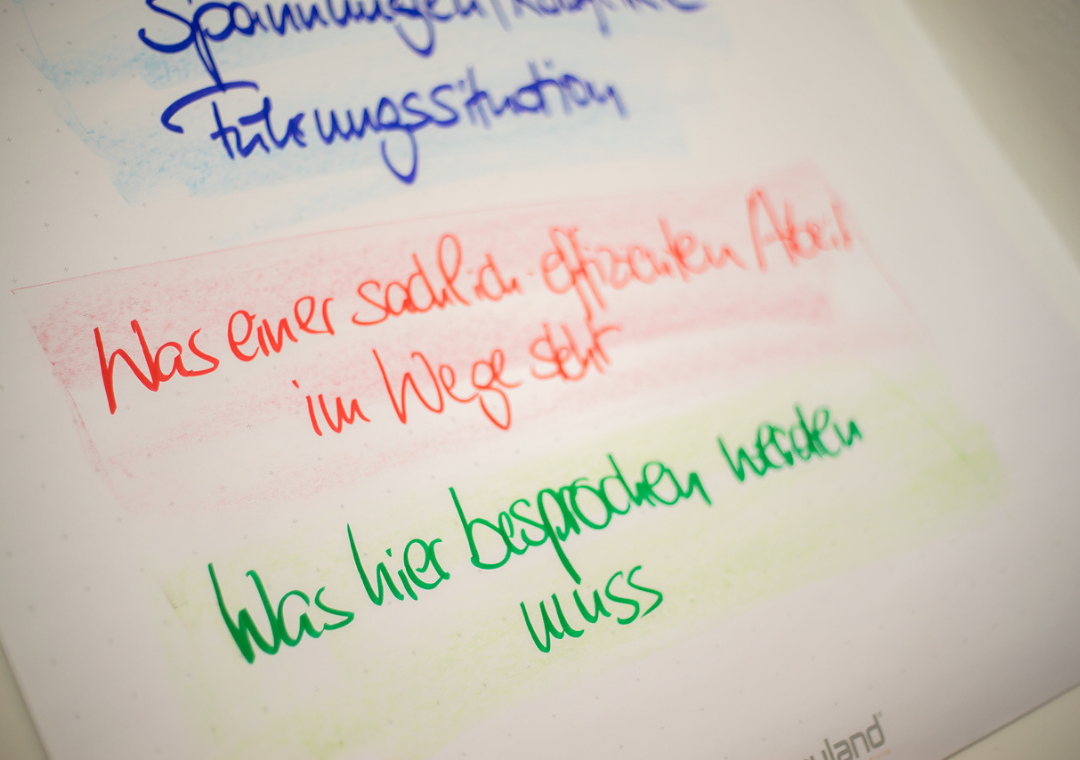 Spannungen/Konflikte
Führungssituation
Was einer sachlich-effizienten Arbeit
im Wege steht
Was hier besprochen werden
muss
uland